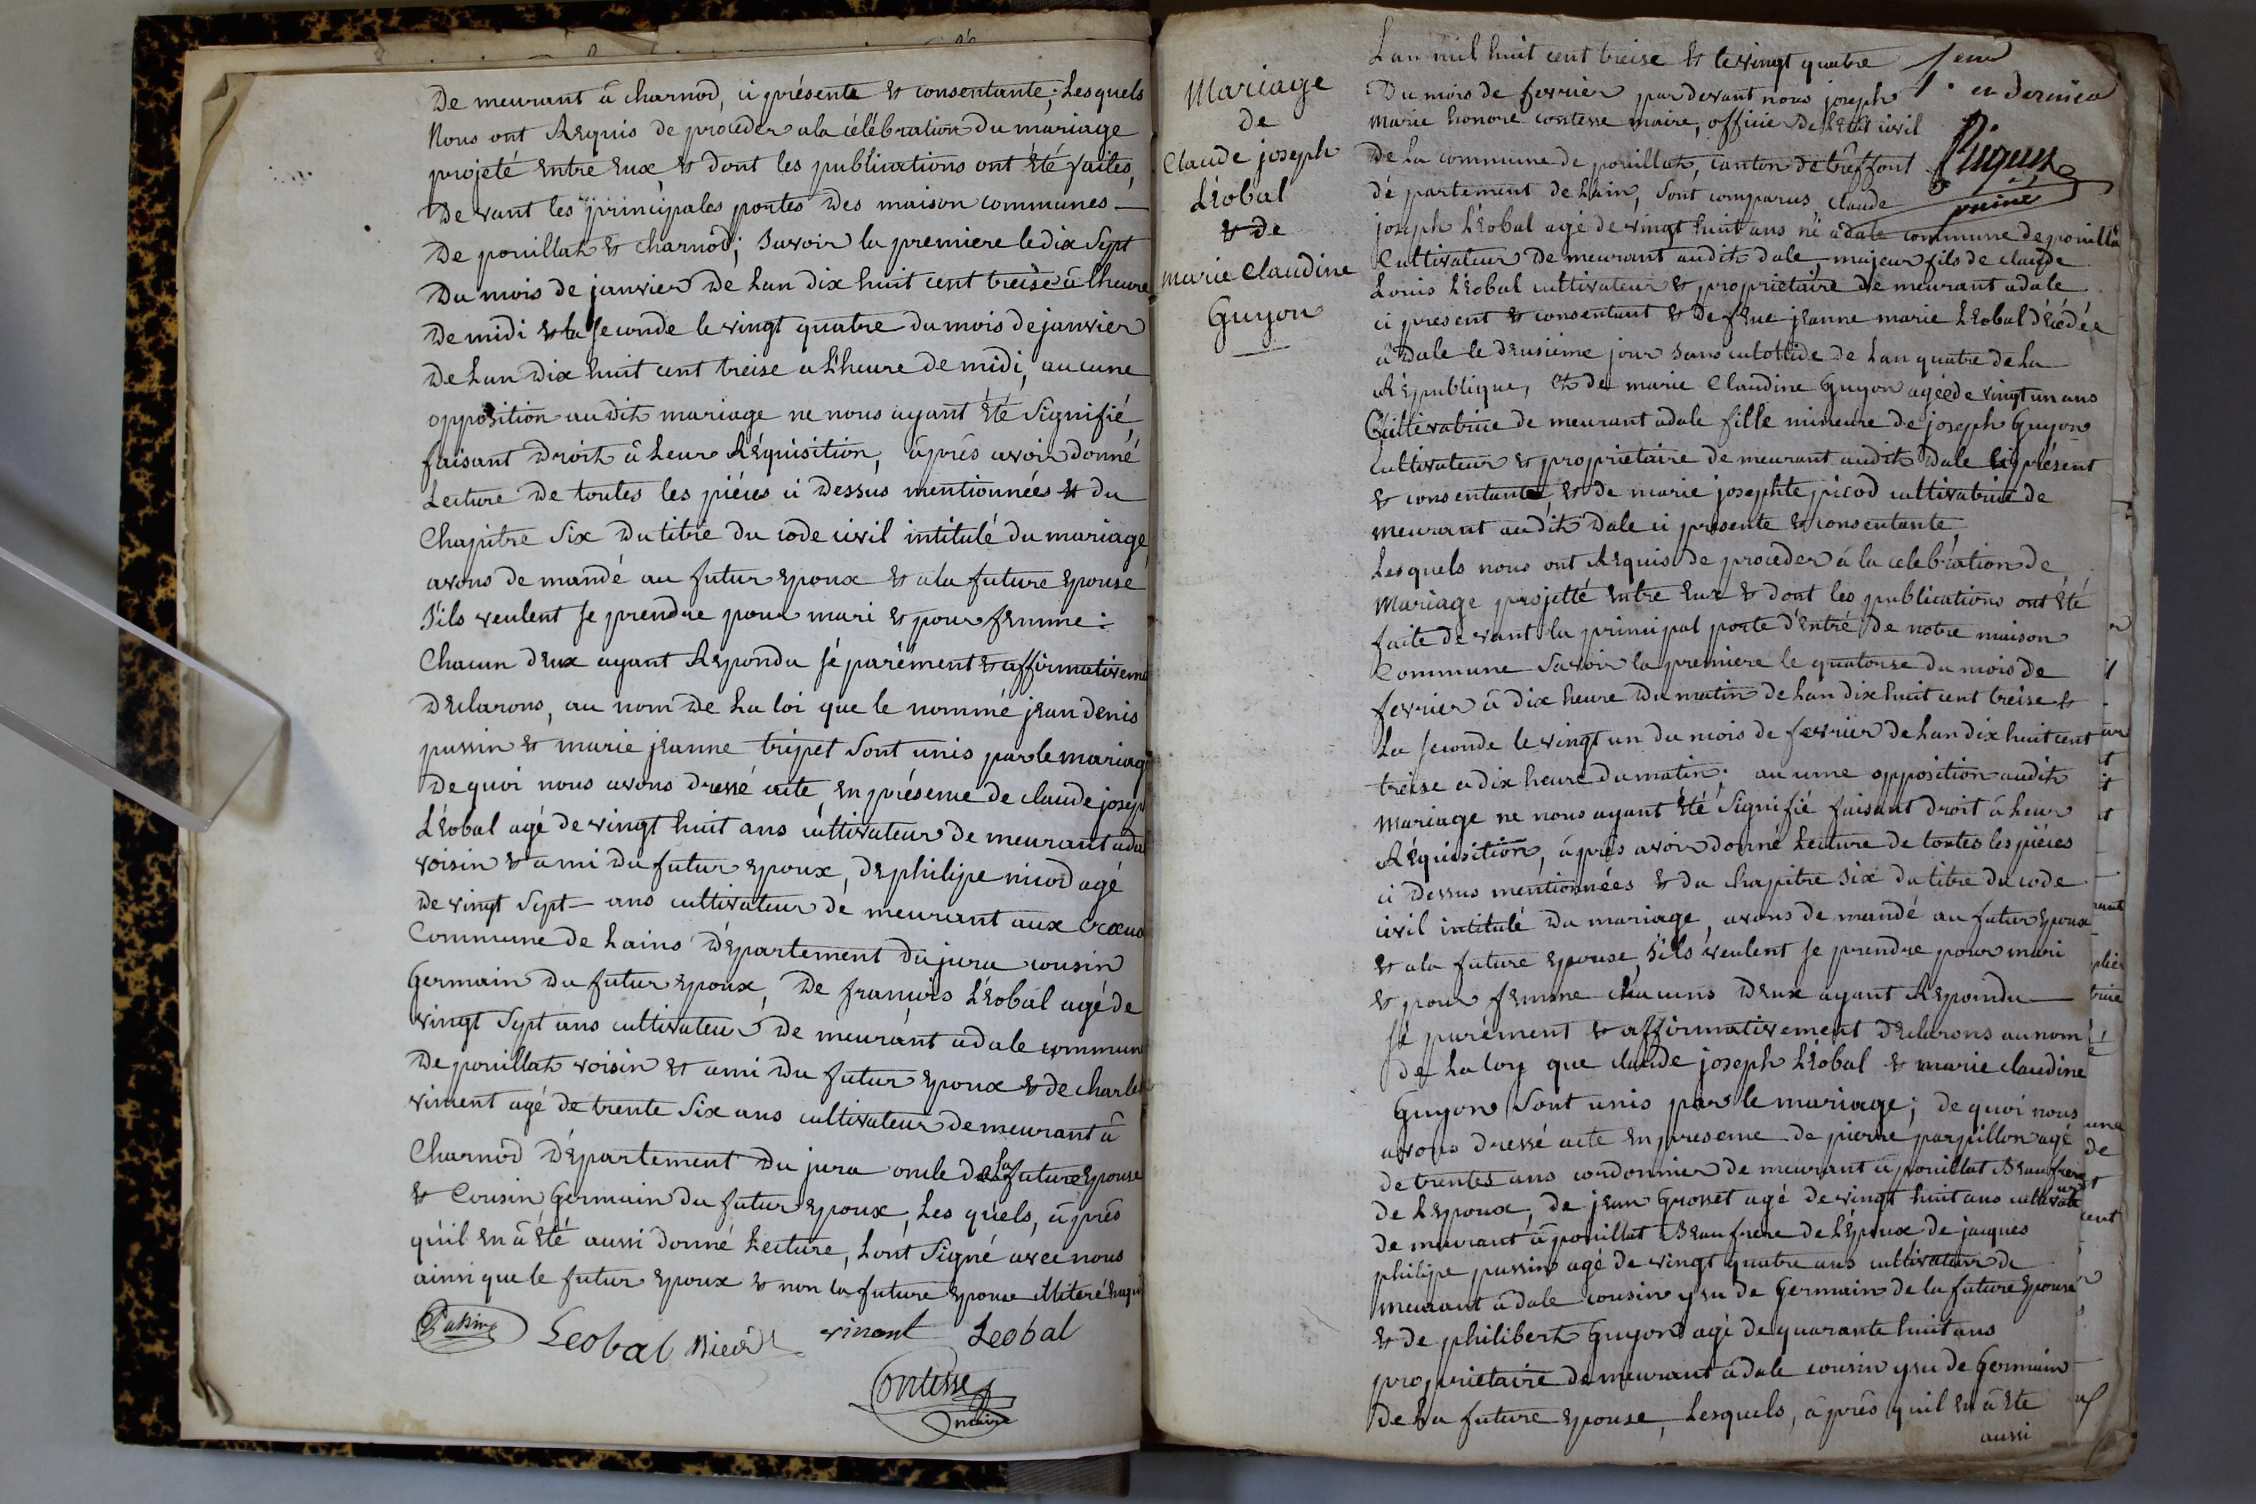 De meurant â charnod, ci présente & consentante; Lesquels
Nous ont Requis de proceder a la célébration Du mariage
projeté Entre Eux & dont les publications ont Eté faites,
De vant les principales portes Des maison communes
De pouillat & charnod; savoir la premiere le dix Sept
Du mois de janvier De Lan Dix huit cent treise â lheure
De midi & la seconde le vingt quatre du mois de janvier
De Lan Dix huit cent treise a Lheure de midi, aucune
opposition au dit mariage ne nous ayant Eté Signifié
faisant Droit â Leur Réquisition, âprés avoir Donné
Lecture De toutes les piéces ci Dessus mentionnées & du
Chapitre Six Du titre du code civil intitulé du mariage
avons de mandé au futur Epoux & a la future Epouse
S'ils veulent se prendre pour mari & pour femme:
Chacun dEux ayant Repondu Sé parément & affirmativeme
DEclarons, au nom De La loi que le nommé jean denis
pussin & marie jeanne tripet Sont unis par le mariag
De quoi nous avons Dressé acte, En présence de claude josep
LEobal agé de vingt huit ans cultivateur de meurant a da
voisin & ami du futur Epoux, De philipe nicod agé
De vingt Sept ans cultivateur de meurant aux
Commune de Lains Département du jura cousin
Germain du futur Epoux, De françois LEobal agé de
vingt Sept ans cultivateur De meurant a dale commun
De pouillat voisin & ami du futur Epoux & de charle
vincent agé de trente Six ans cultivateur demeurant â
Charnod Département Du jura oncle de La future Epouse
& Cousin Germain du futur Epoux, Les quels, âprés
qu'il En â Eté aussi donné Lecture, Lont Signé avec nous
ainsi que le futur Epoux & non la future Epouse illiteré
Leobal vincent Leobal
Contesse
maire
Mariage
de
Claude joseph
LEobal
& de
marie Claudine
Guyon
Lan mil huit cent treise & le vingt quatre
Du mois de fevrier par devant nous joseph
marie honore contesse maire, officier De Létat civil
De La commune de pouillat, canton de treffort
dé partement de Lain, Sont comparus claude
joseph LEobal agé de vingt huit ans né a dale commune de pouilla
Cultivateur De meurant audit dale, majeur fils de claude
Louis LEobal cultivateur & proprietaire De meurant a dale
ci present & consentant & de feue jeanne marie LEobal décédée
â dale le deusiéme jour sans culottide de Lan quatre de La
République, Et de marie Claudine Guyon agée de vingt un ans
Cultivatrice de meurant a dale fille mineure de joseph Guyon
cultivateur & proprietaire de meurant audit dale ci présent
& consentante & de marie josephte picod cultivatrice de
meurant au dit Dale ci presente & consentante,
Lesquels nous ont Requis de proceder â la celebration de
Mariage projetté Entre Eux & dont les publications ont Eté
faite de vant la principal porte d'Entré de notre maison
Commune Savoir la premiere le quatorse du mois de
fevrier â dix heure Du matin de Lan dix huit cent treise &
La seconde le vingt un du mois de fevrier de Lan dix huit cent
treise a dix heure du matin; aucune opposition audit
Mariage ne nous ayant Eté Signifié faisant droit â Leur
Réquisition, âprés avoir donné Lecture de toutes les piéces
ci Dessus mentionnées & du chapitre six du titre du code
civil intitulé Du mariage, avons de mandé au futur Epoux
& a la future Epouse, S'ils veulent se prendre pour mari
& pour femme chacuns dEux ayant Repondu
Sé parément & affirmativement dEclarons au nom
de La loy que claude joseph LEobal & marie claudine
Guyon Sont unis par le mariage; de quoi nous
avons dressé acte En presence de pierre parpillon agé
de trentes ans cordonnier de meurant â pouillat Beaufrere
de LEpoux, de jean Gronet agé de vingt huit ans cultivate
de meurant â pouillat Beau frere de LEpoux de jacques
philipe pussin agé de vingt quatre ans cultivateur de
meurant â dale cousin ysu de Germain de la future Epouse
& de philibert Guyon agé de quarante huit ans
proprietaire de meurant â dale cousin ysu de Germain
de La future Epouse, Lesquels, â prés quil En â Eté
aussi